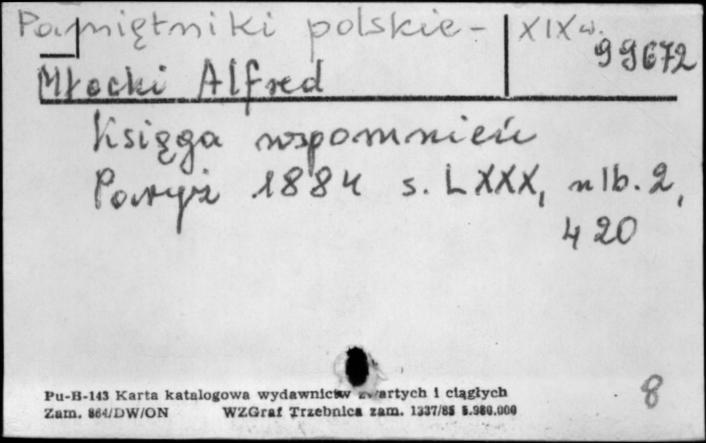 Pamiętniki polskie - XIX w.
99672
Młocki Alfred
Księga wspomnień
Paryż 1884 s. LXXX, nlb. 2,
420
Pu-B-143 Karta katalogowa wydawnictw zwartych i ciągłych
Zam. 864/DW/ON WZGraf Trzebnica zam. 1337/85 5.980.000
8